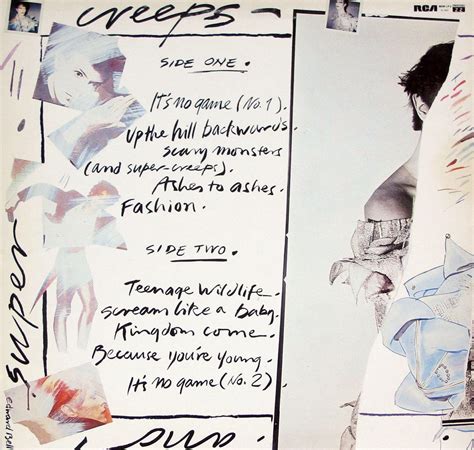 creeps
RCA
SIDE ONE.
It's no game (No. 1).
up the hill backwards.
scary monsters
(and super-creeps).
Ashes to ashes.
Fashion.
SIDE TWO.
Teenage wildlife.
scream like a baby.
Kingdom come.
Because you're young.
It's no game (No. 2)
super
and
Edward Bell